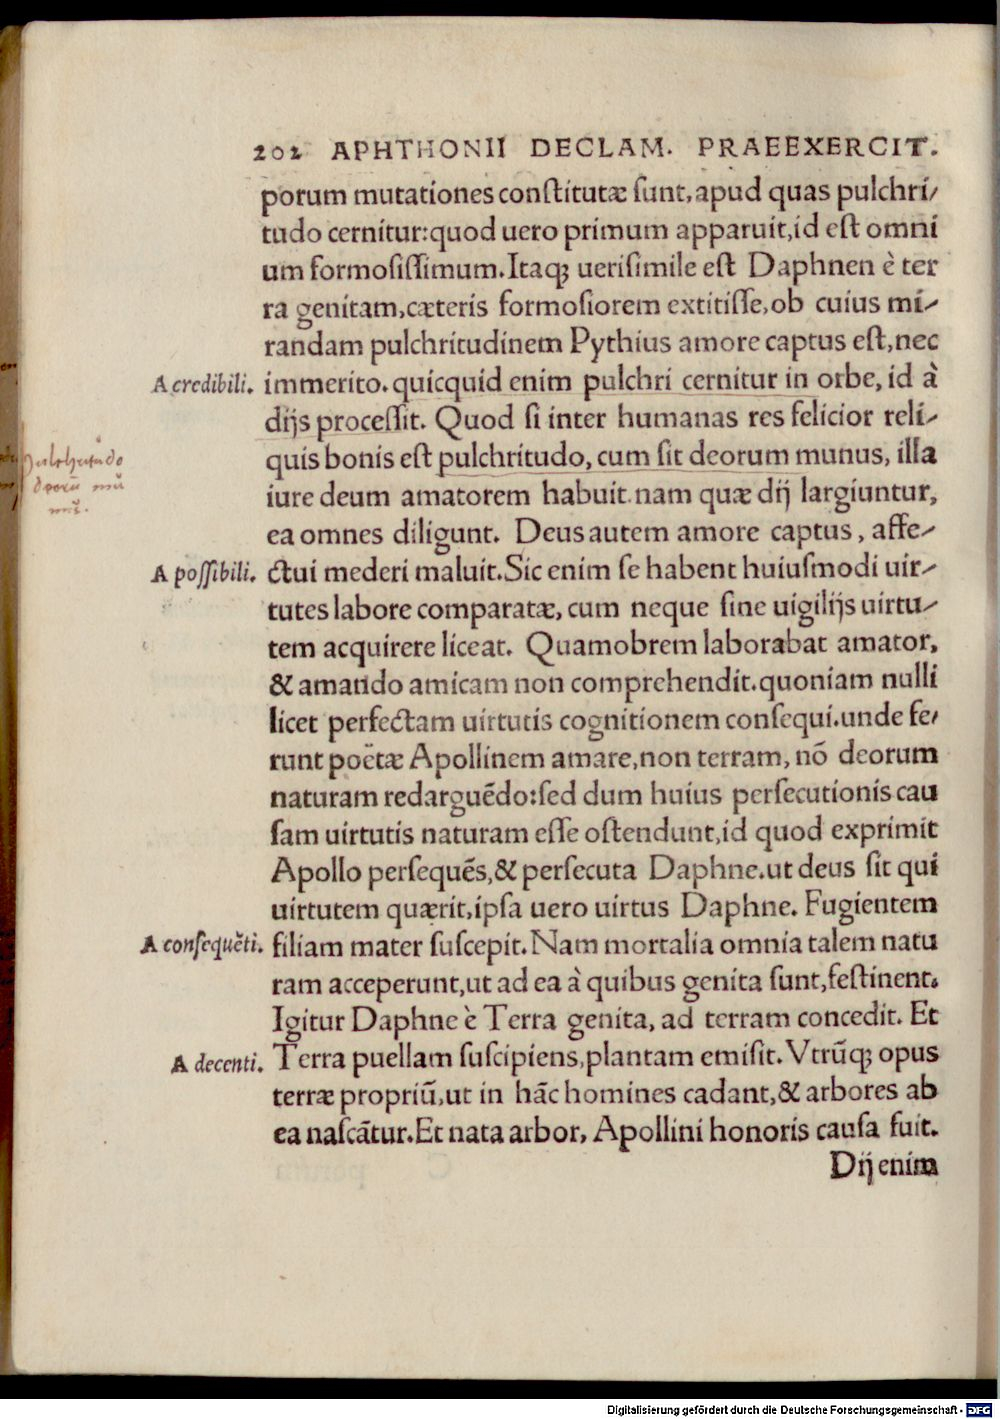 202 APHTHONII DECLAM. PRAEEXERCIT.
porum mutationes conſtitutæ ſunt, apud quas pulchri/
tudo cernitur: quod uero primum apparuit, id eſt omni
um formoſiſſimum. Itaq; ueriſimile eſt Daphnen è ter
ra genitam, cæteris formoſiorem extitiſſe, ob cuius mi/
randam pulchritudinem Pythius amore captus eſt, nec
A credibili. immerito. quicquid enim pulchri cernitur in orbe, id à
dijs proceſſit. Quod ſi inter humanas res felicior reli/
quis bonis eſt pulchritudo, cum ſit deorum munus, illa
pulchritudo
deorū mu
nus.
iure deum amatorem habuit. nam quæ dij largiuntur,
ea omnes diligunt. Deus autem amore captus, affe/
A poſſibili. ctui mederi maluit. Sic enim ſe habent huiuſmodi uir/
tutes labore comparatæ, cum neque ſine uigilijs uirtu/
tem acquirere liceat. Quamobrem laborabat amator,
& amando amicam non comprehendit. quoniam nulli
licet perfectam uirtutis cognitionem conſequi. unde fe/
runt poëtæ Apollinem amare, non terram, nō deorum
naturam redarguēdo: ſed dum huius perſecutionis cau
ſam uirtutis naturam eſſe oſtendunt, id quod exprimit
Apollo perſequēs, & perſecuta Daphne. ut deus ſit qui
uirtutem quærit, ipſa uero uirtus Daphne. Fugientem
A conſequēti. filiam mater ſuſcepit. Nam mortalia omnia talem natu
ram acceperunt, ut ad ea à quibus genita ſunt, feſtinent.
Igitur Daphne è Terra genita, ad terram concedit. Et
A decenti. Terra puellam ſuſcipiens, plantam emiſit. Vtrūq; opus
terræ propriū, ut in hāc homines cadant, & arbores ab
ea naſcātur. Et nata arbor, Apollini honoris cauſa fuit.
Dij enim
Digitalisierung gefördert durch die Deutsche Forschungsgemeinschaft - DFG